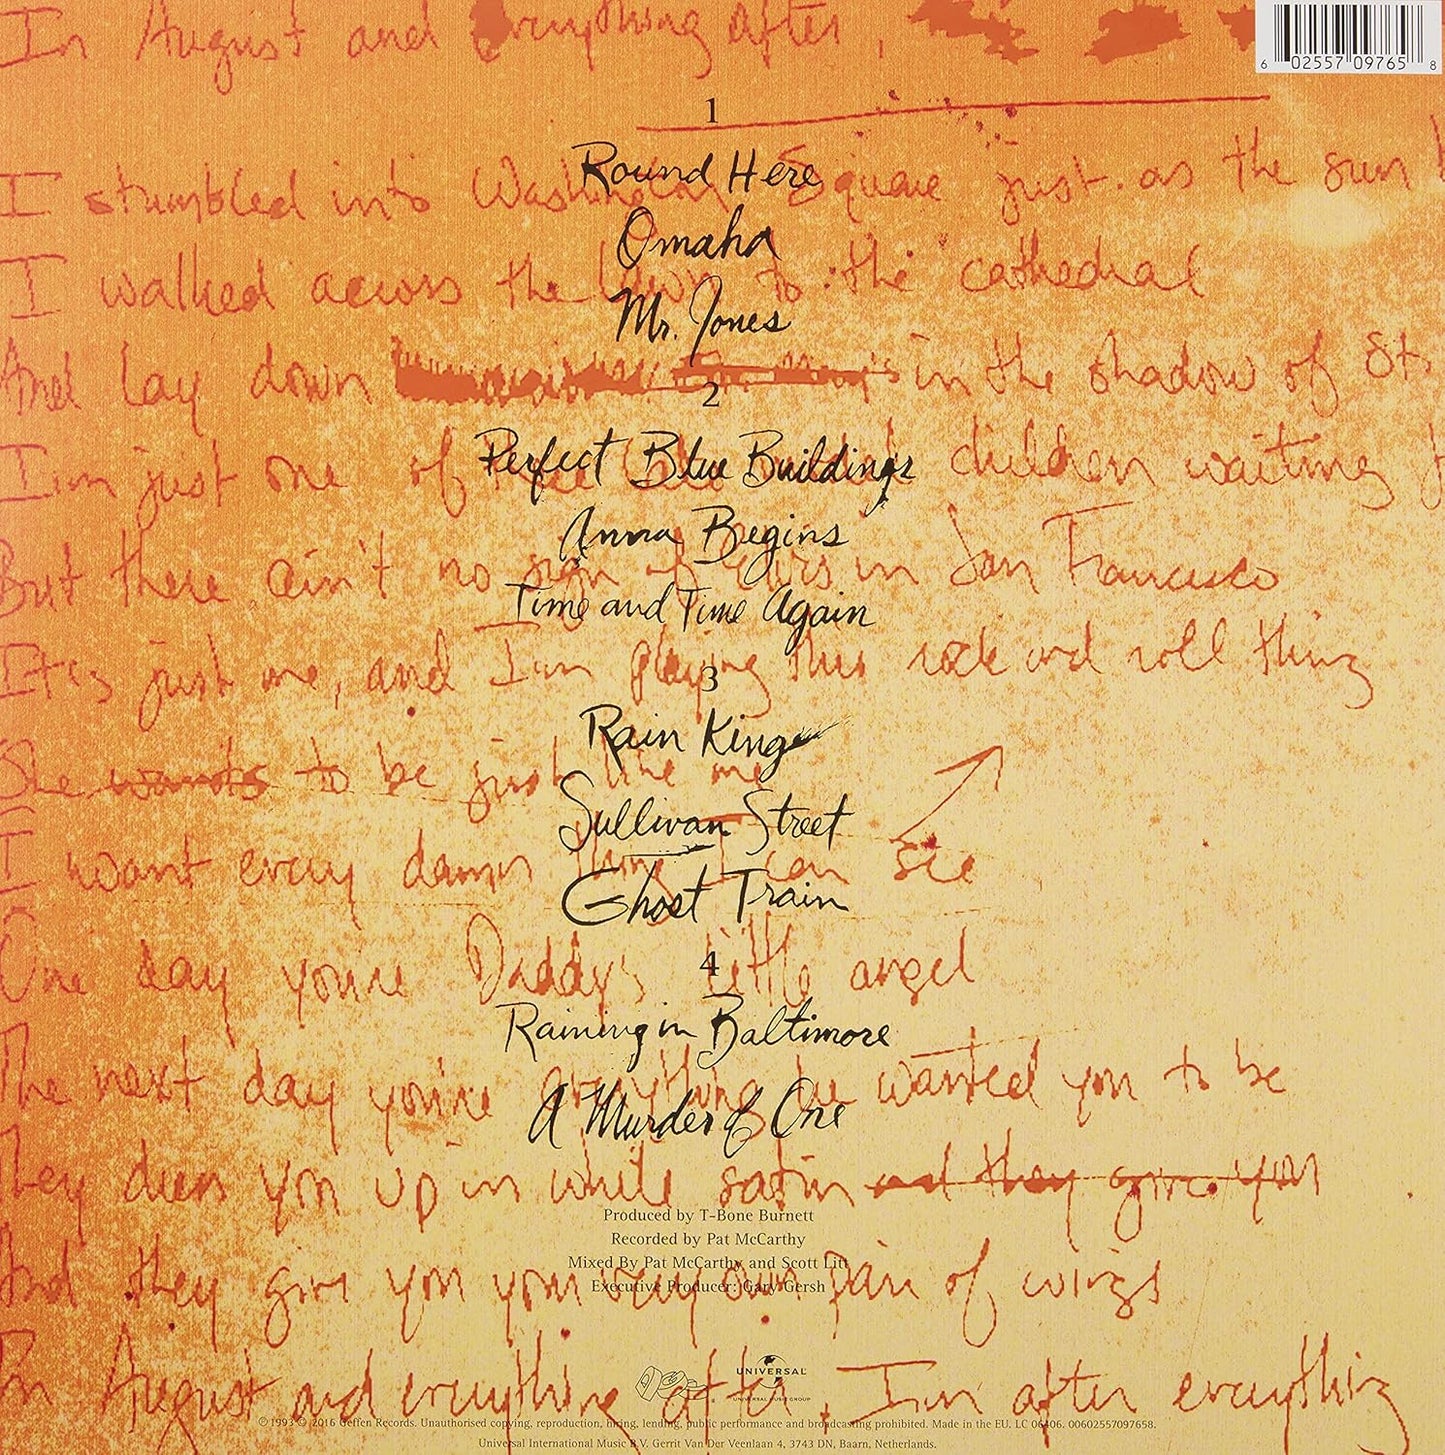 In August and everything after,
6 02557 09765 8
1
I stumbled into Washington Square just as the sun
Round Here
Omaha
I walked across the lawn to the cathedral
Mr. Jones
And lay down in the shadow of St.
2
I'm just one of these children waiting
Perfect Blue Buildings
Anna Begins
But there ain't no sign of ours in San Francisco
Time and Time Again
It's just me, and I'm playing this rock and roll thing
3
Rain King
She wants to be just like me
Sullivan Street
I want every damn thing I can see
Ghost Train
One day you're Daddy's little angel
4
Raining in Baltimore
The next day you're everything he wanted you to be
A Murder of One
They dress you up in white satin and they give you
Produced by T-Bone Burnett
Recorded by Pat McCarthy
Mixed By Pat McCarthy and Scott Litt
Executive Producer: Gary Gersh
And they give you your very own pair of wings
UNIVERSAL
UNIVERSAL MUSIC GROUP
In August and everything after, I'm after everything
℗ 1993 © 2016 Geffen Records. Unauthorised copying, reproduction, hiring, lending, public performance and broadcasting prohibited. Made in the EU. LC 06406. 00602557097658.
Universal International Music B.V. Gerrit Van Der Veenlaan 4, 3743 DN, Baarn, Netherlands.